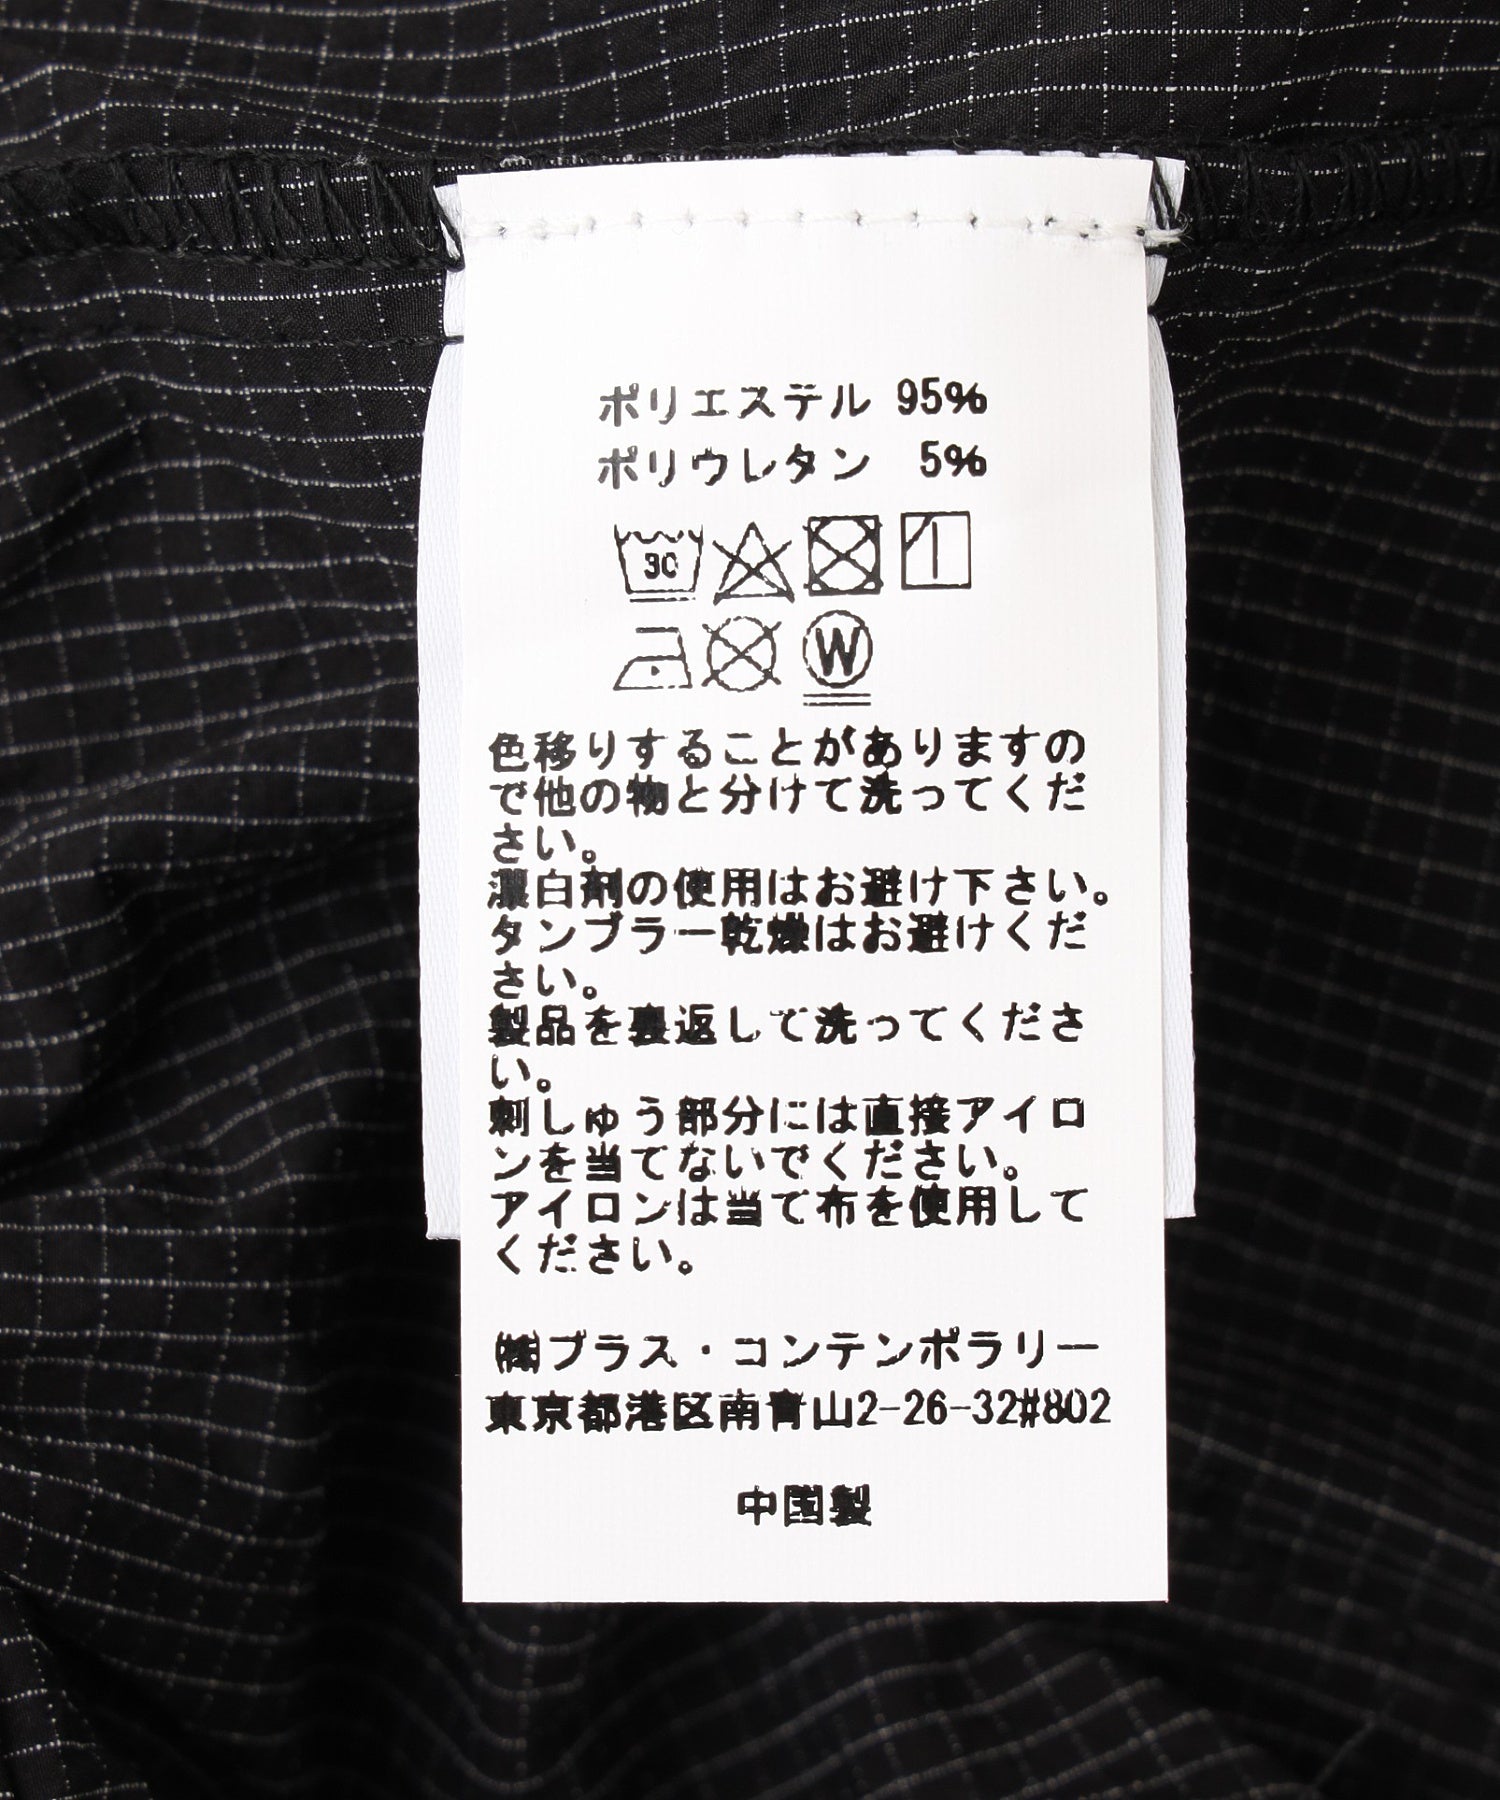 ポリエステル 95%
ポリウレタン 5%
30
W
色移りすることがありますの
で他の物と分けて洗ってくだ
さい。
漂白剤の使用はお避け下さい。
タンブラー乾燥はお避けくだ
さい。
製品を裏返して洗ってくださ
い。
刺しゅう部分には直接アイロ
ンを当てないでください。
アイロンは当て布を使用して
ください。
㈱プラス・コンテンポラリー
東京都港区南青山2-26-32#802
中国製